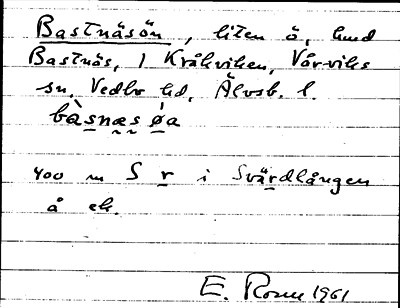 Bastnäsön, liten ö, hmd
Bastnäs, i Kråkviken, Vårviks
sn, Vedbo hd, Älvsb. l.
bàsnæs ø̀a
400 m S r i Svärdlången
å ek.
E. Rosell 1961